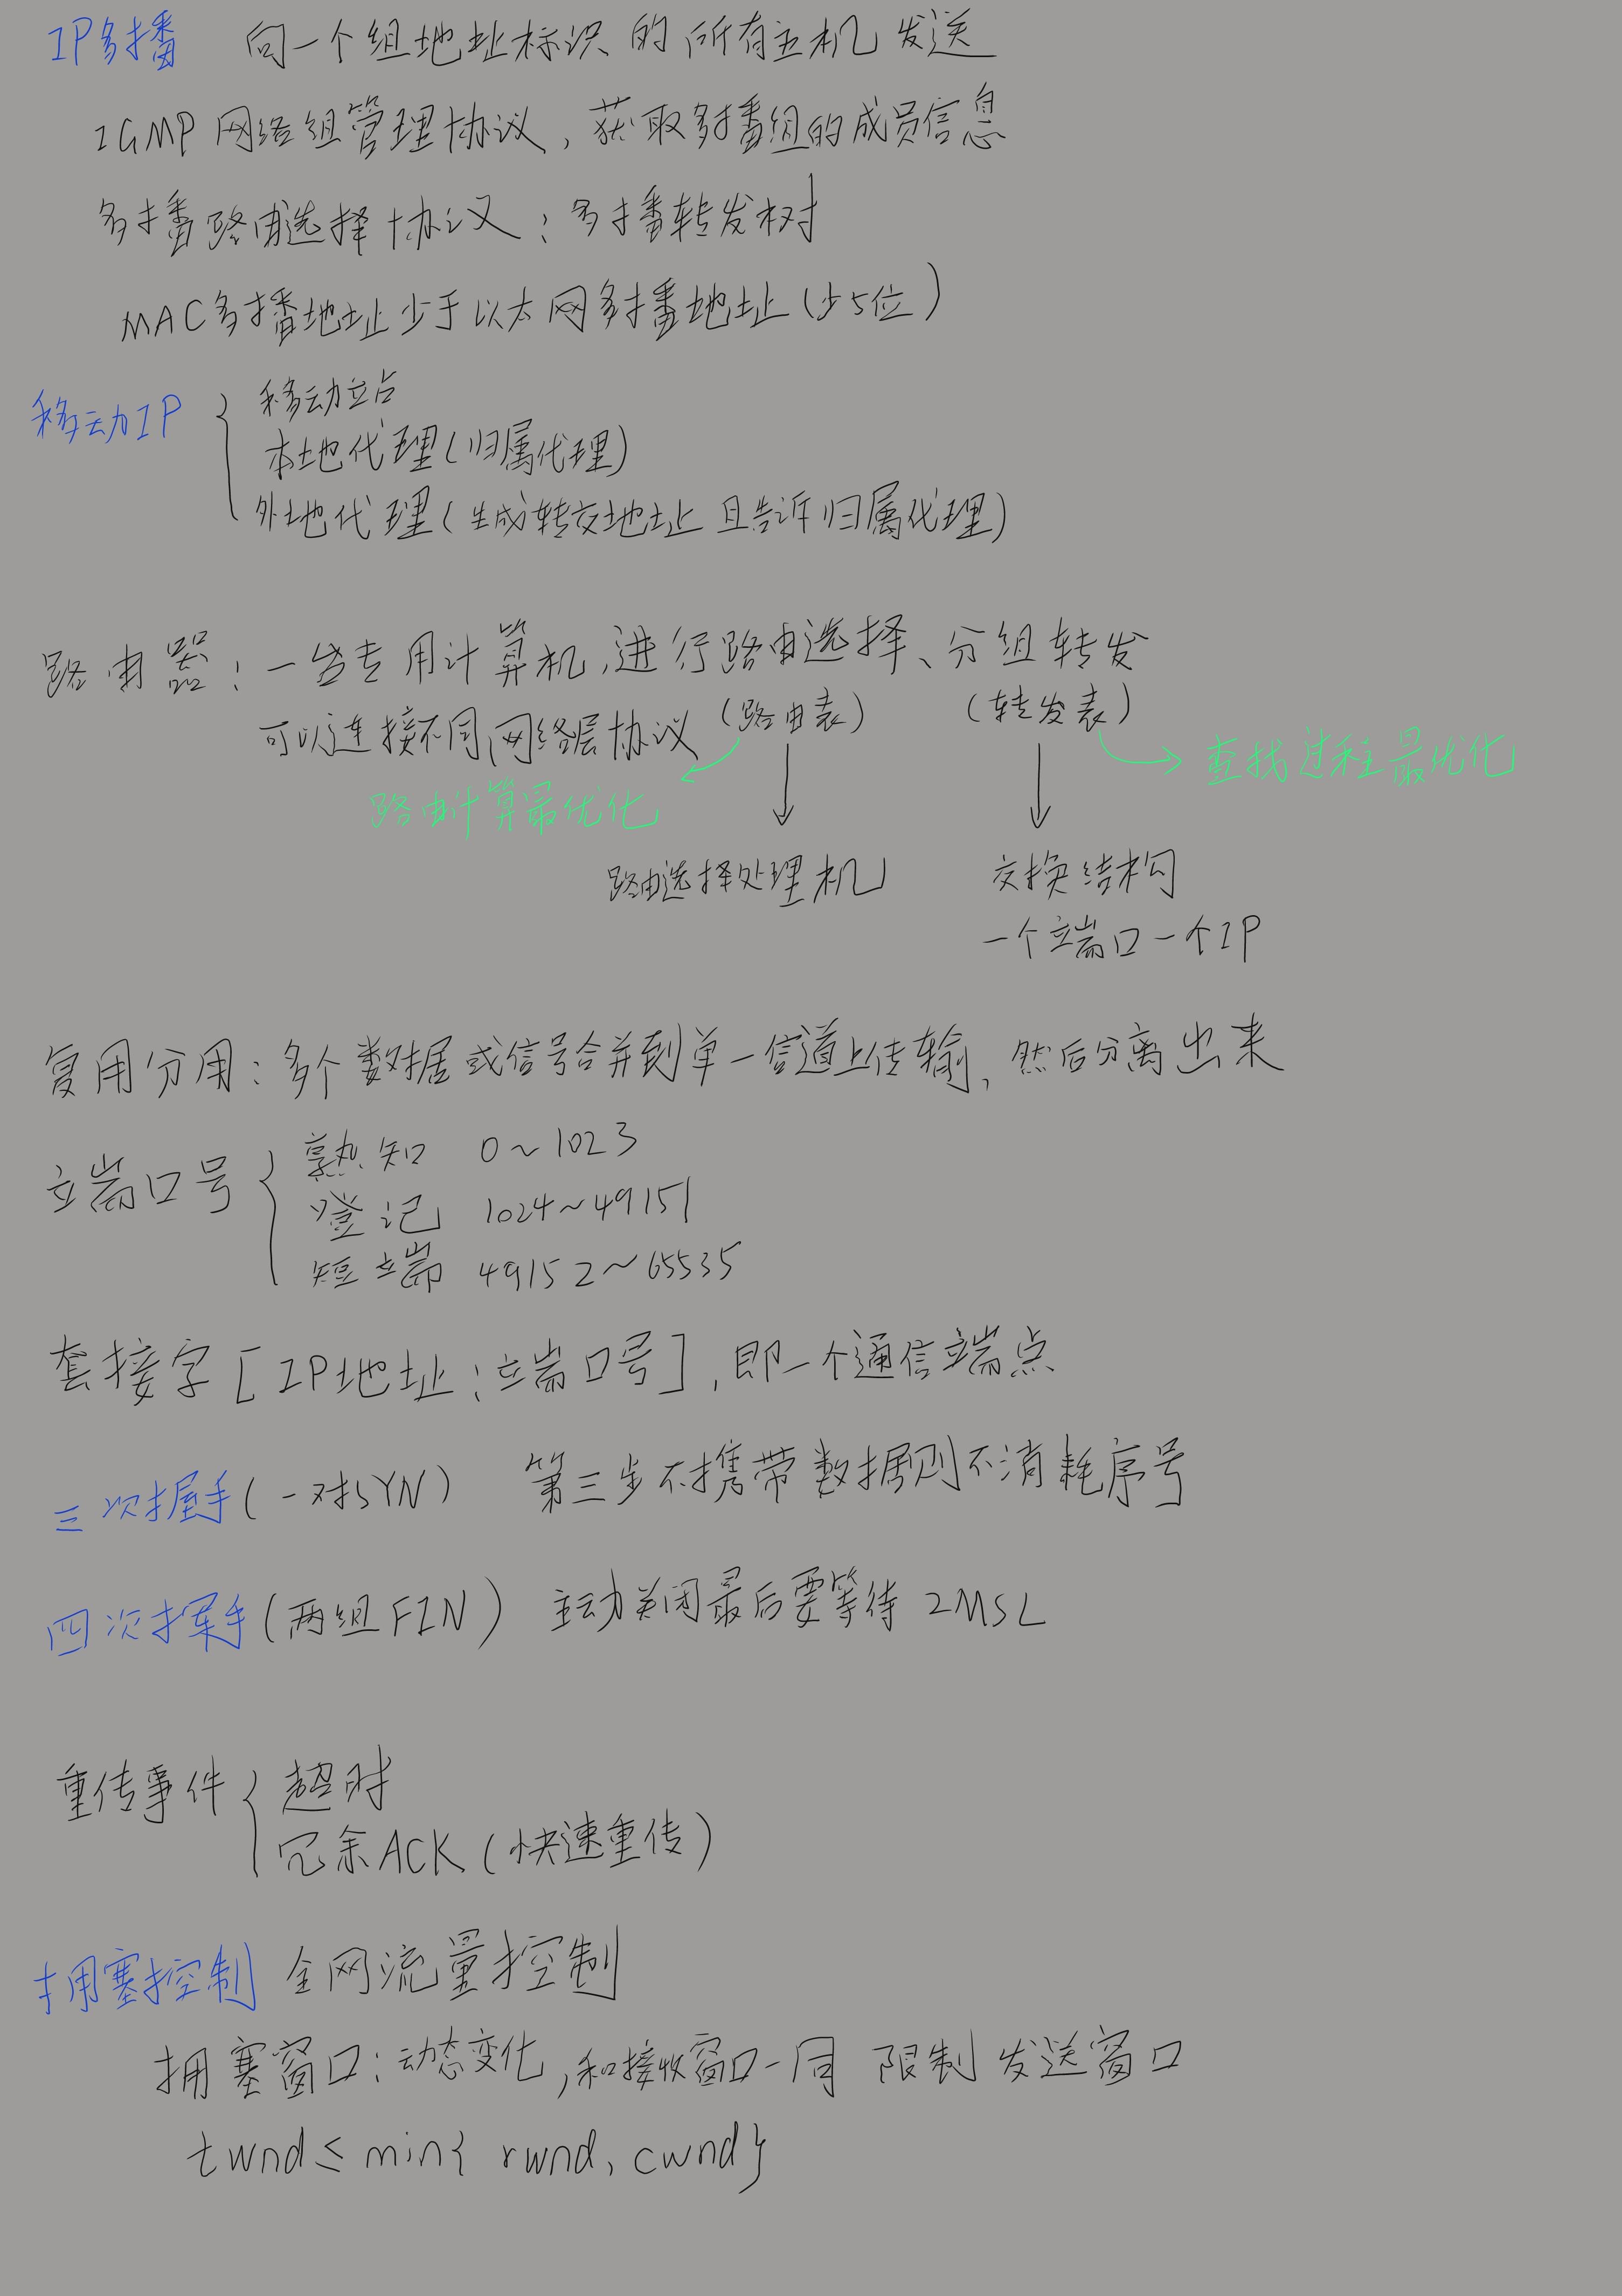 IP多播 向一个组地址标识的所有主机发送
IGMP网络组管理协议,获取多播组的成员信息
多播路由选择协议:多播转发树
MAC多播地址少于以太网多播地址(少5位)
移动IP
移动站
本地代理(归属代理)
外地代理(生成转交地址且告诉归属代理)
路由器:一台专用计算机,进行路由选择、分组转发
可以连接不同网络层协议 (路由表) (转发表)
路由计算最优化 查找过程最优化
路由选择处理机 交换结构
一个端口一个IP
复用分用:多个数据或信号合并到单一信道上传输,然后分离出来
端口号
熟知 0~1023
登记 1024~49151
短端 49152~65535
套接字[IP地址:端口号],即一个通信端点
三次握手(一对SYN) 第三步不携带数据则不消耗序号
四次挥手(两组FIN) 主动关闭最后要等待2MSL
重传事件
超时
冗余ACK(快速重传)
拥塞控制 全网流量控制
拥塞窗口:动态变化,和接收窗口一同限制发送窗口
twnd≤min{rwnd,cwnd}